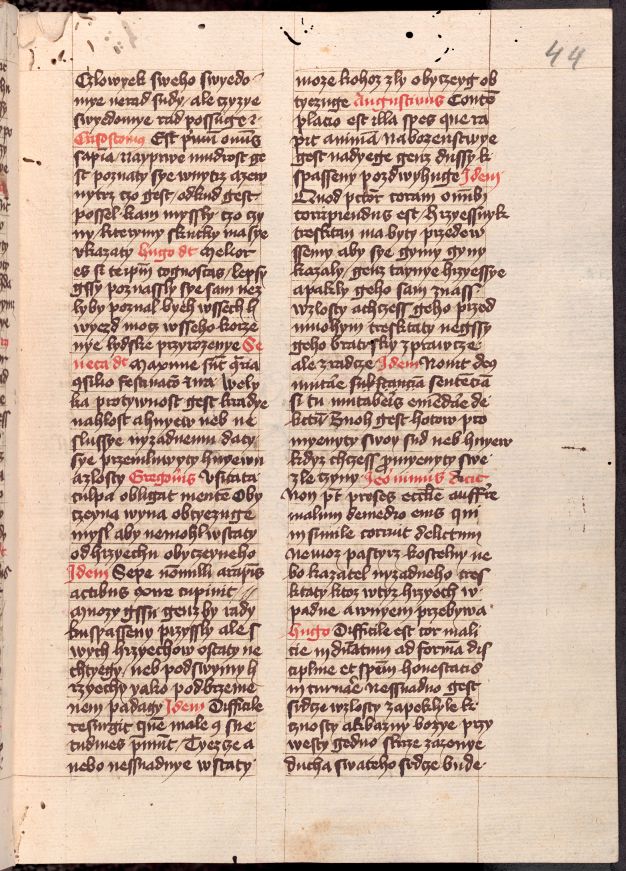 44
Czlowyek sweho swyedo
mye nerad sudy, ale czyzye
swyedomye rad possuge
Crisostomus Est primum omnis
sapia, nayprwe mudrost ge
st poznaty sye wnytrz a zew
nytrz czo gest, odkud gest
possel, kam myssly czo czy
ny, kterymy skutky ma sye
vkazaty hugo dt Melior
es si te ipm cognoscas, lepsy
gsy poznassly sye sam nez
lyby poznal bych wssech h
wyezd moczy wsseho korze
nye lydske przyrozenye Se
neca dt Maxime
festinaco et ira wely
ka protywnost gest kradye
nahlost a hnyew neb ne
slussye nyzadnemu daty
sye przemluwyty hnyewu
a zlosty Gregorius Usitata
culpa obligat mente Oby
czeyna wyna obtyezuge
mysl aby nemohl wstaty
od hrzyechu obyczeyneho
Idem Sepe nonnulli
actibus cupiunt
a mnozy gssu genz by rady
k uspasseny przyssly ale s
wych hrzyechow ostaty ne
chtyegy, neb pod swymy h
rzyechy yako pod brzeme
nem padagy Idem Difficile
resurgit quem male sue
tudines premunt, Tyezcze a
nebo nessnadnye wstaty
moze kohoz zly obyczeyg ob
tyezuge Augustinus Contem
placio est illa spes que ra
pit animam, nabozenstwye
gest nadyege genz dussy k
spasseny pozdwyhuge Idem
Quod pctor coram omnibus
corripiendus est, hrzyessnyk
tresktan ma byty przedew
ssemy aby sye gyny gyny
kazaly, genz taynye hrzyessye
a pakly geho sam znass
wzlosty a chczess geho przed
mnohym tresktaty negssy
geho bratrsky zprawcze
ale zradcze Idem Novit deus
mutare substanciam sentenciam
si tu mutabis emendare de
lictum Znoh gest hotow pro
myenyty swoy sud neb hnyew
kdyz chczess promyenyty swe
zle czyny Leo nimus dicit
Non pt proses eccle auffre
malum de medio eius qui
in simile corruit delictum
Nemoz pastyrz kostelny ne
bo kazatel nyzadneho tres
ktaty ktoz wtyz hrzyech w
padne a wnyem przebywa
hugo Difficile est cor mali
cie induratum ad forma dis
cipline et spem honestatis
nessnadno gest
srdcze wzlosty zapekhle k
cznosty a k bazny bozye przy
westy gedno skrze zazzenye
ducha swateho srdcze bude